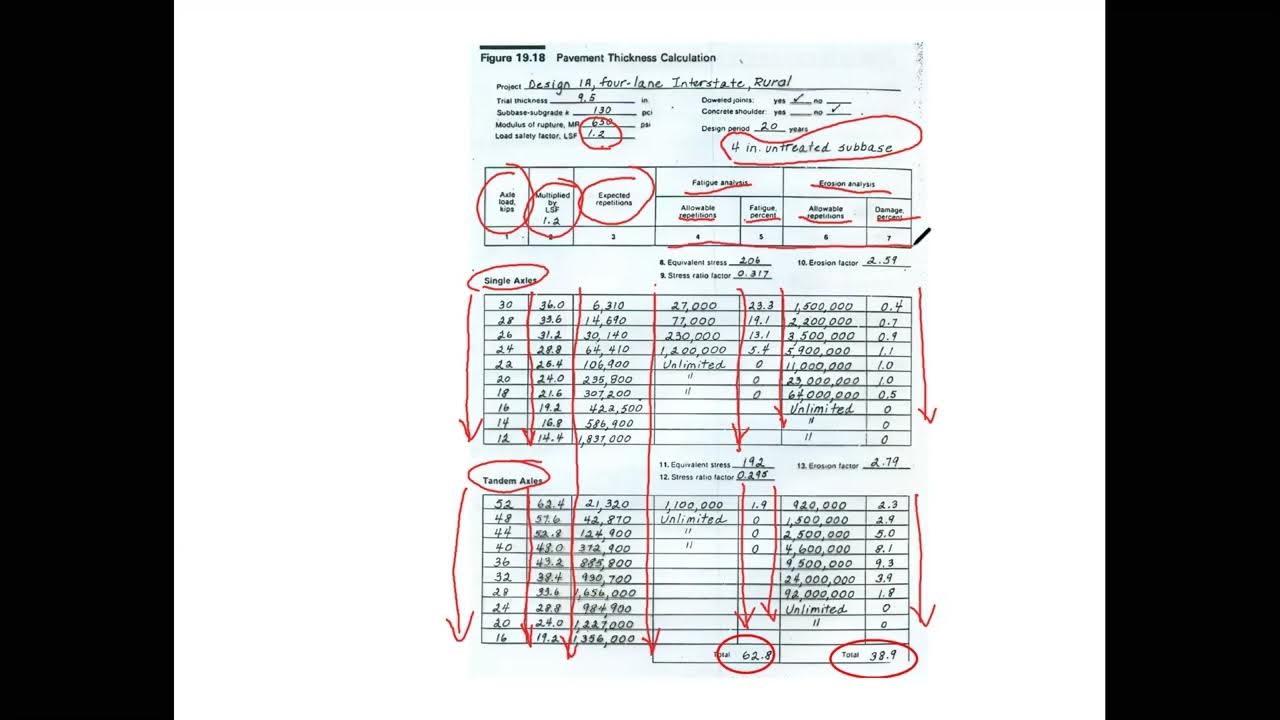 Figure 19.18 Pavement Thickness Calculation
Project Design 1A, four-lane Interstate, Rural
Trial thickness 9.5 in. Doweled joints: yes ✓ no
Subbase-subgrade k 130 pci Concrete shoulder: yes no ✓
Modulus of rupture, MR 650 psi Design period 20 years
Load safety factor, LSF 1.2
4 in. untreated subbase
Axle load, kips Multiplied by LSF 1.2 Expected repetitions Fatigue analysis Erosion analysis
Allowable repetitions Fatigue, percent Allowable repetitions Damage, percent
1 2 3 4 5 6 7
8. Equivalent stress 206 10. Erosion factor 2.59
9. Stress ratio factor 0.317
Single Axles
30 36.0 6,310 27,000 23.3 1,500,000 0.4
28 33.6 14,690 77,000 19.1 2,200,000 0.7
26 31.2 30,140 230,000 13.1 3,500,000 0.9
24 28.8 64,410 1,200,000 5.4 5,900,000 1.1
22 26.4 106,900 Unlimited 0 11,000,000 1.0
20 24.0 235,800 " 0 23,000,000 1.0
18 21.6 307,200 " 0 64,000,000 0.5
16 19.2 422,500 Unlimited 0
14 16.8 586,900 " 0
12 14.4 1,837,000 " 0
11. Equivalent stress 192 13. Erosion factor 2.79
12. Stress ratio factor 0.295
Tandem Axles
52 62.4 21,320 1,100,000 1.9 920,000 2.3
48 57.6 42,870 Unlimited 0 1,500,000 2.9
44 52.8 124,900 " 0 2,500,000 5.0
40 48.0 372,900 " 0 4,600,000 8.1
36 43.2 885,800 9,500,000 9.3
32 38.4 930,700 24,000,000 3.9
28 33.6 1,656,000 92,000,000 1.8
24 28.8 984,900 Unlimited 0
20 24.0 1,227,000 " 0
16 19.2 1,356,000
Total 62.8 Total 38.9